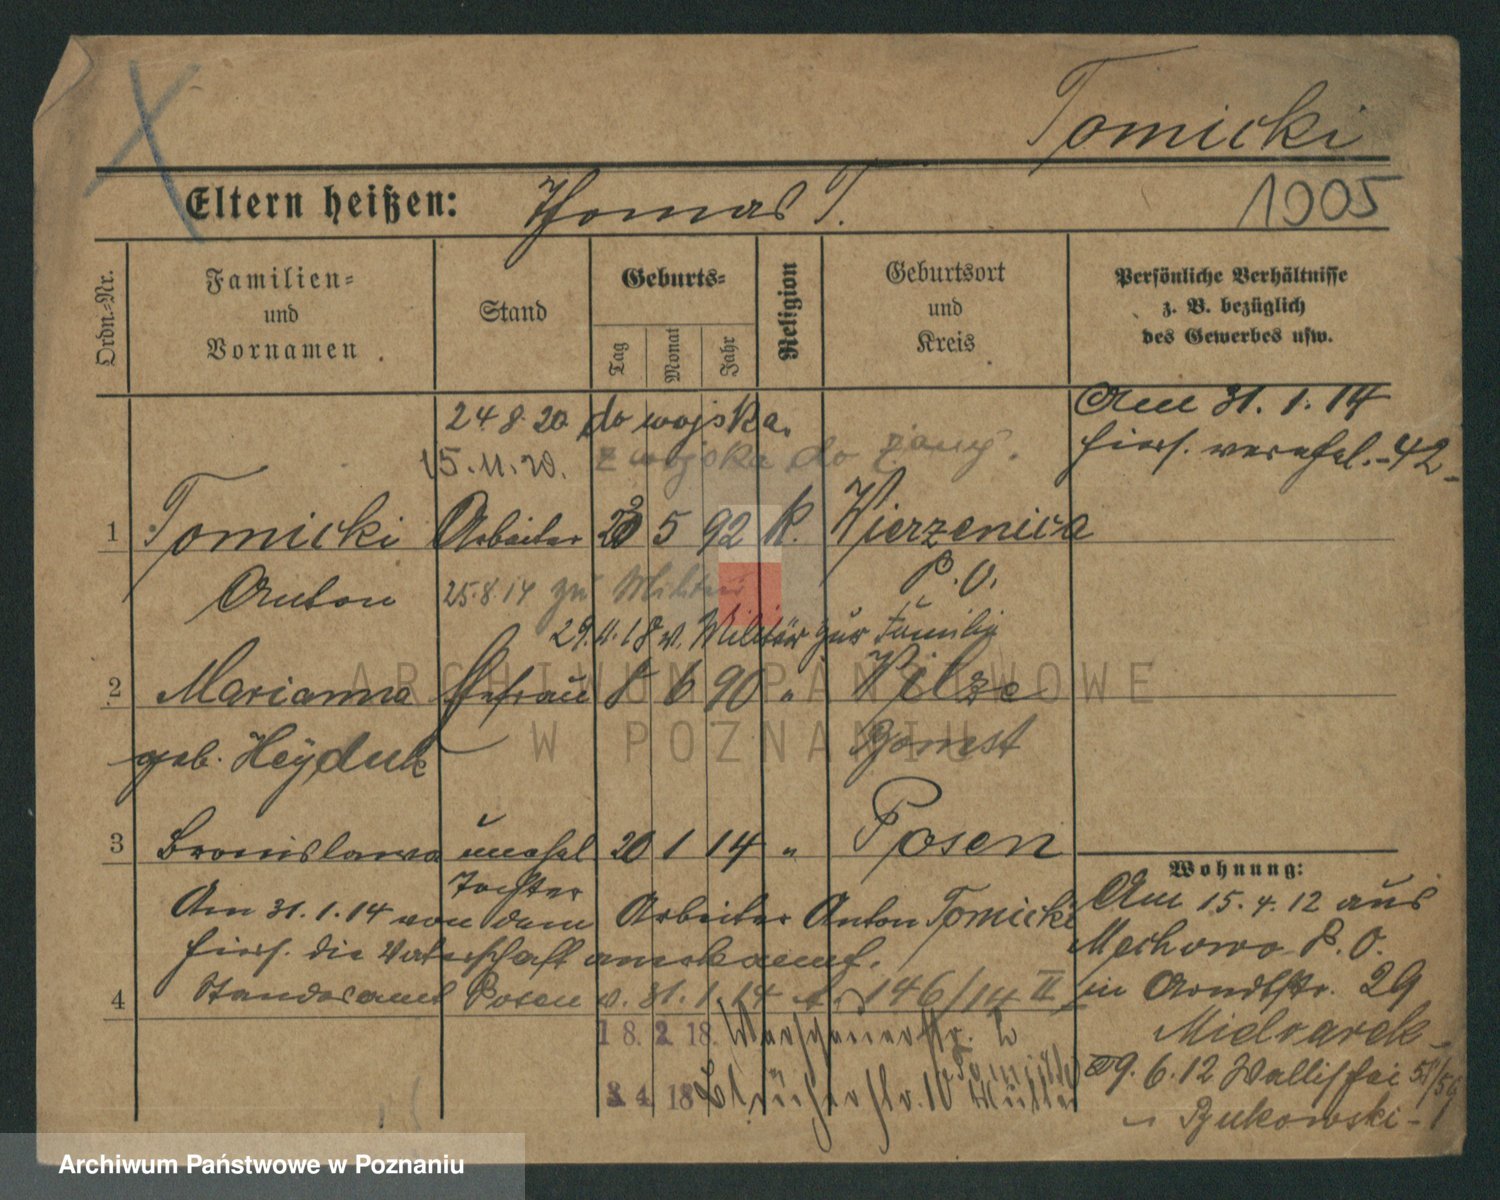 Tomicki
Eltern heißen: Thomas T.
1905
Ordn.-Nr.
Familien-
und
Vornamen
Stand
Geburts-
Tag
Monat
Jahr
Religion
Geburtsort
und
Kreis
Persönliche Verhältnisse
z. B. bezüglich
des Gewerbes usw.
24.8.20 do wojska.
15.11.20. z wojska do żony.
Am 31.1.14
hiers. verehel.
1 Tomicki Arbeiter 5 92 K. Wierzenica
Anton P. O.
25.8.14 zu Militär
29.11.18 v. Militär zur Familie
2 Marianna Ehefrau 8 6 90 " Wilze
geb. Heyduk Bomst
3 Bronislawa unehel 20 1 14 " Posen
Tochter
Am 31.1.14 von dem Arbeiter Anton Tomicki
hiers. die Vaterschaft anerkannt.
4 Standesamt Posen v. 31.1.14 146/14 II
18. 2. 18. Warschauerstr. 2
3 4 18 10
Wohnung:
Am 15.4.12 aus
Mechowo P. O.
in Arndtstr. 29
Mielcarek
29.6.12 Wallischei
Bukowski
ARCHIWUM PAŃSTWOWE
W POZNANIU
Archiwum Państwowe w Poznaniu